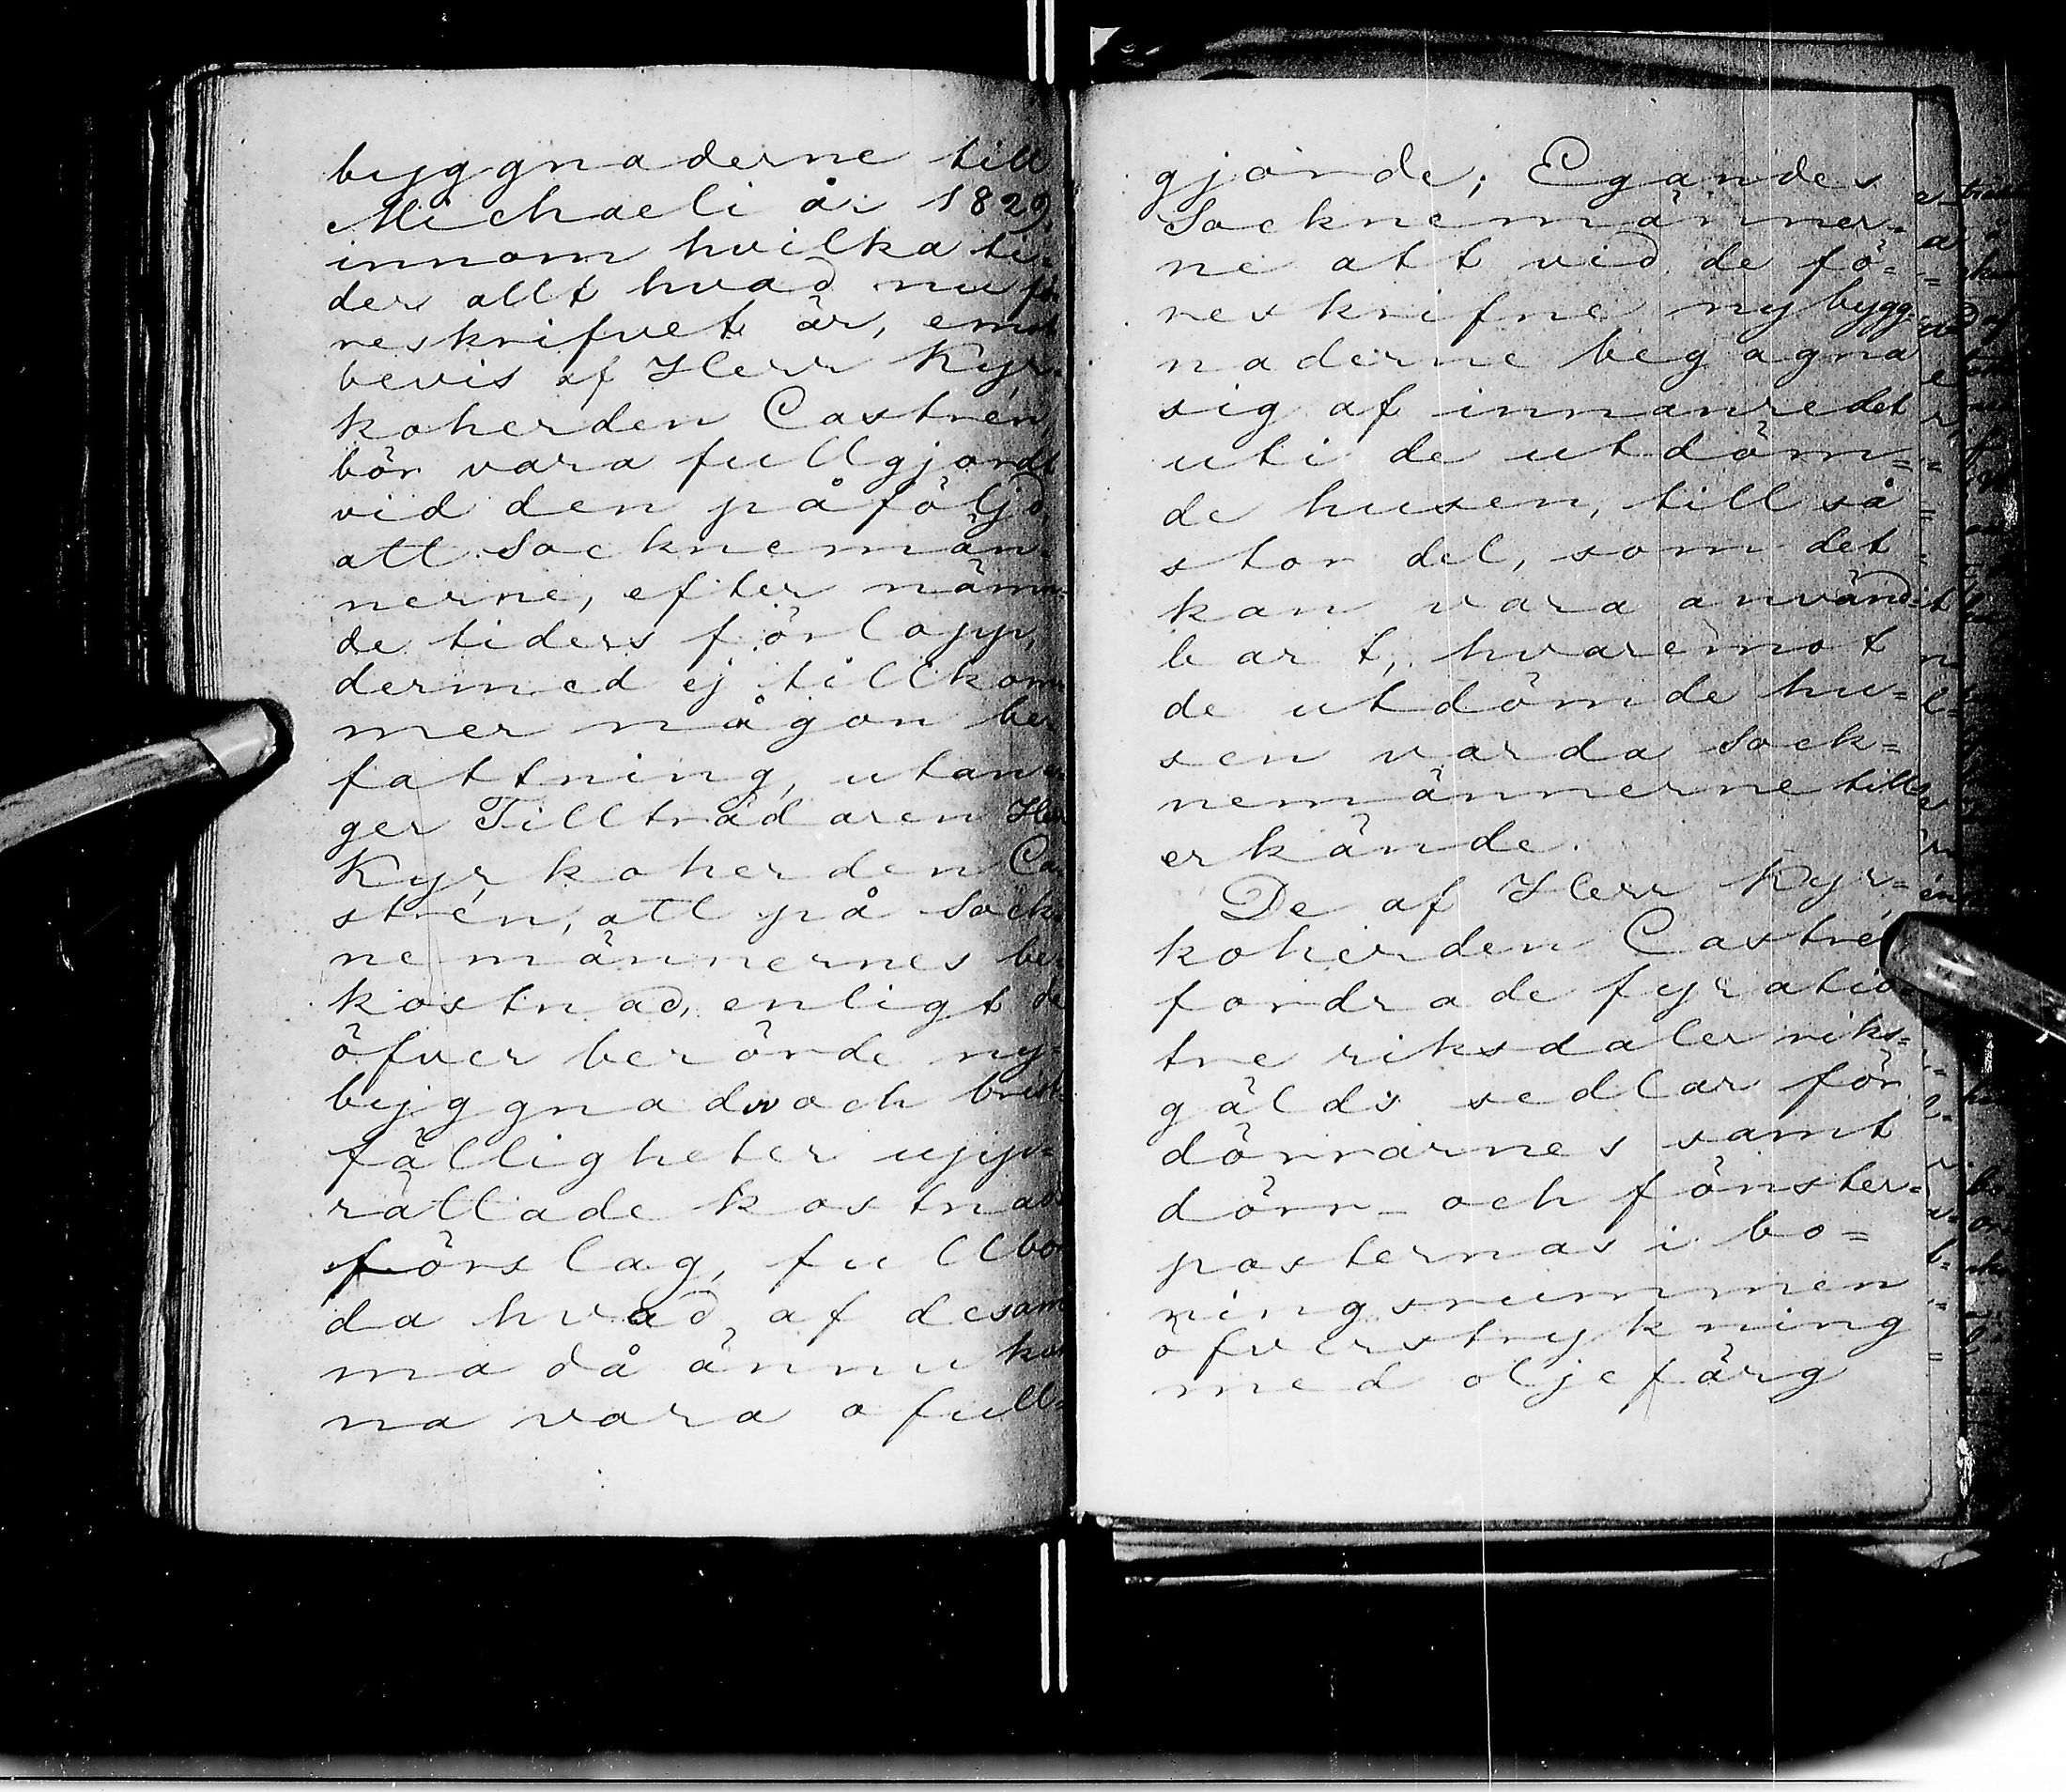 byggnaderne till
Michaeli år 1829.
innom hvilka ti-
der allt hvad nu fö-
reskrifvet är, emot
bevis af Herr Kyr-
koherden Castrén,
bör vara fullgjordt
vid den påföljd,
att Socknemän-
nerne, efter nämn-
de tiders förlopp,
dermed ej tillkom-
mer någon be-
fattning, utan
ger Tillträdaren Herr
Kyrkoherden Ca-
strén, att på Sock-
nemännernes be-
kostnad, enligt de
öfver berörde ny-
byggnads och brist-
fälligheter upp-
rättade kostnads
förslag, fullbor-
da hvad af desam-
ma då ännu kun-
na vara ofull-
gjorde; Egandes
Socknemänner-
ne att vid de fö-
reskrifne nybygg-
naderne begagna
sig af innanredet
uti de utdöm=
de husen, till så
stor del, som det
kan vara använd-
bart, hvaremot
de utdömde hu=
sen varda Sock=
nemännerne till
erkände.
De af Herr Kyr-
koherden Castrén
fordrade fyratio
tre riksdaler riks-
gälds sedlar för
dörrarnes samt
dörr- och fönster-
posternas i bo=
ningsrummen
öfverstrykning
med oljefärg